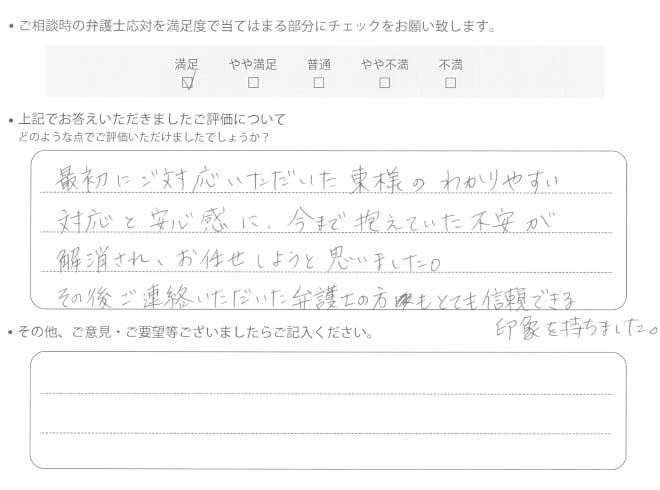 • ご相談時の弁護士応対を満足度で当てはまる部分にチェックをお願い致します。
満足 やや満足 普通 やや不満 不満
☑ □ □ □ □
• 上記でお答えいただきましたご評価について
どのような点でご評価いただけましたでしょうか？
最初にご対応いただいた東様のわかりやすい
対応と安心感に、今まで抱えていた不安が
解消され、お任せしようと思いました。
その後ご連絡いただいた弁護士の方もとても信頼できる
印象を持ちました。
• その他、ご意見・ご要望等ございましたらご記入ください。